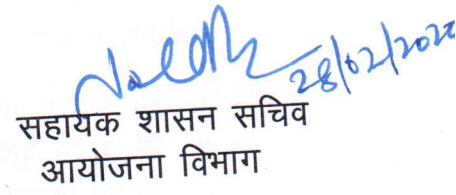 28/02/2020
सहायक शासन सचिव
आयोजना विभाग